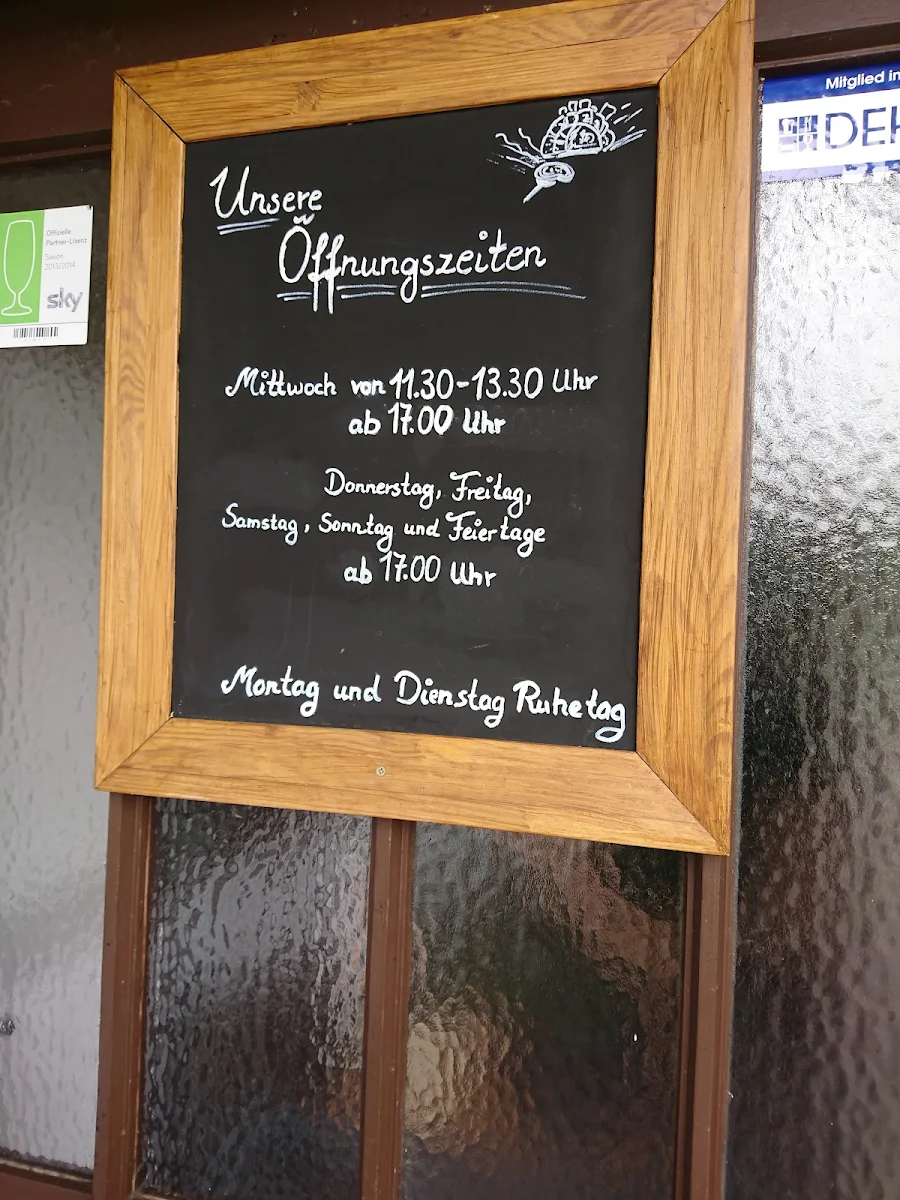 Unsere
Öffnungszeiten
Mittwoch von 11.30-13.30 Uhr
ab 17.00 Uhr
Donnerstag, Freitag,
Samstag, Sonntag und Feiertage
ab 17.00 Uhr
Montag und Dienstag Ruhetag
Offizielle
Partner-Lizenz
Saison
2013/2014
sky
Mitglied im
DEH